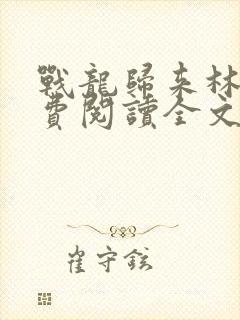 戰龍歸來林
費閱讀全文
崔守鉉